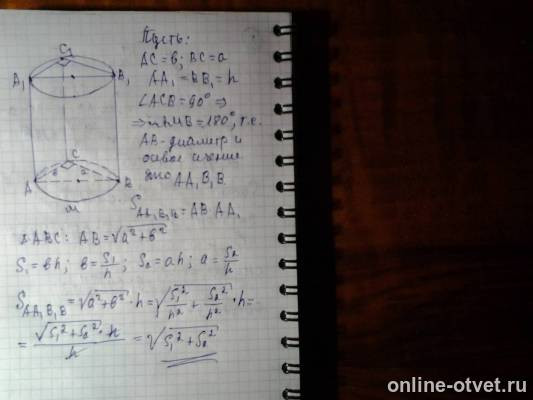 Пусть:
AC = в; BC = a
AA₁ = BB₁ = h
∠ACB = 90° ⇒
⇒ ∪AMB = 180°, т.е.
AB - диаметр и
осевое сечение
AA₁B₁B
S_AA₁B₁B = AB·AA₁
C₁
A₁ B₁
C
A в a B
M
△ABC: AB = √a² + в²
S₁ = вh; в = S₁/h; S₂ = ah; a = S₂/h
S_AA₁B₁B = √a² + в² · h = √S₁²/h² + S₂²/h² · h =
= √S₁² + S₂² · h / h = √S₁² + S₂²
online-otvet.ru